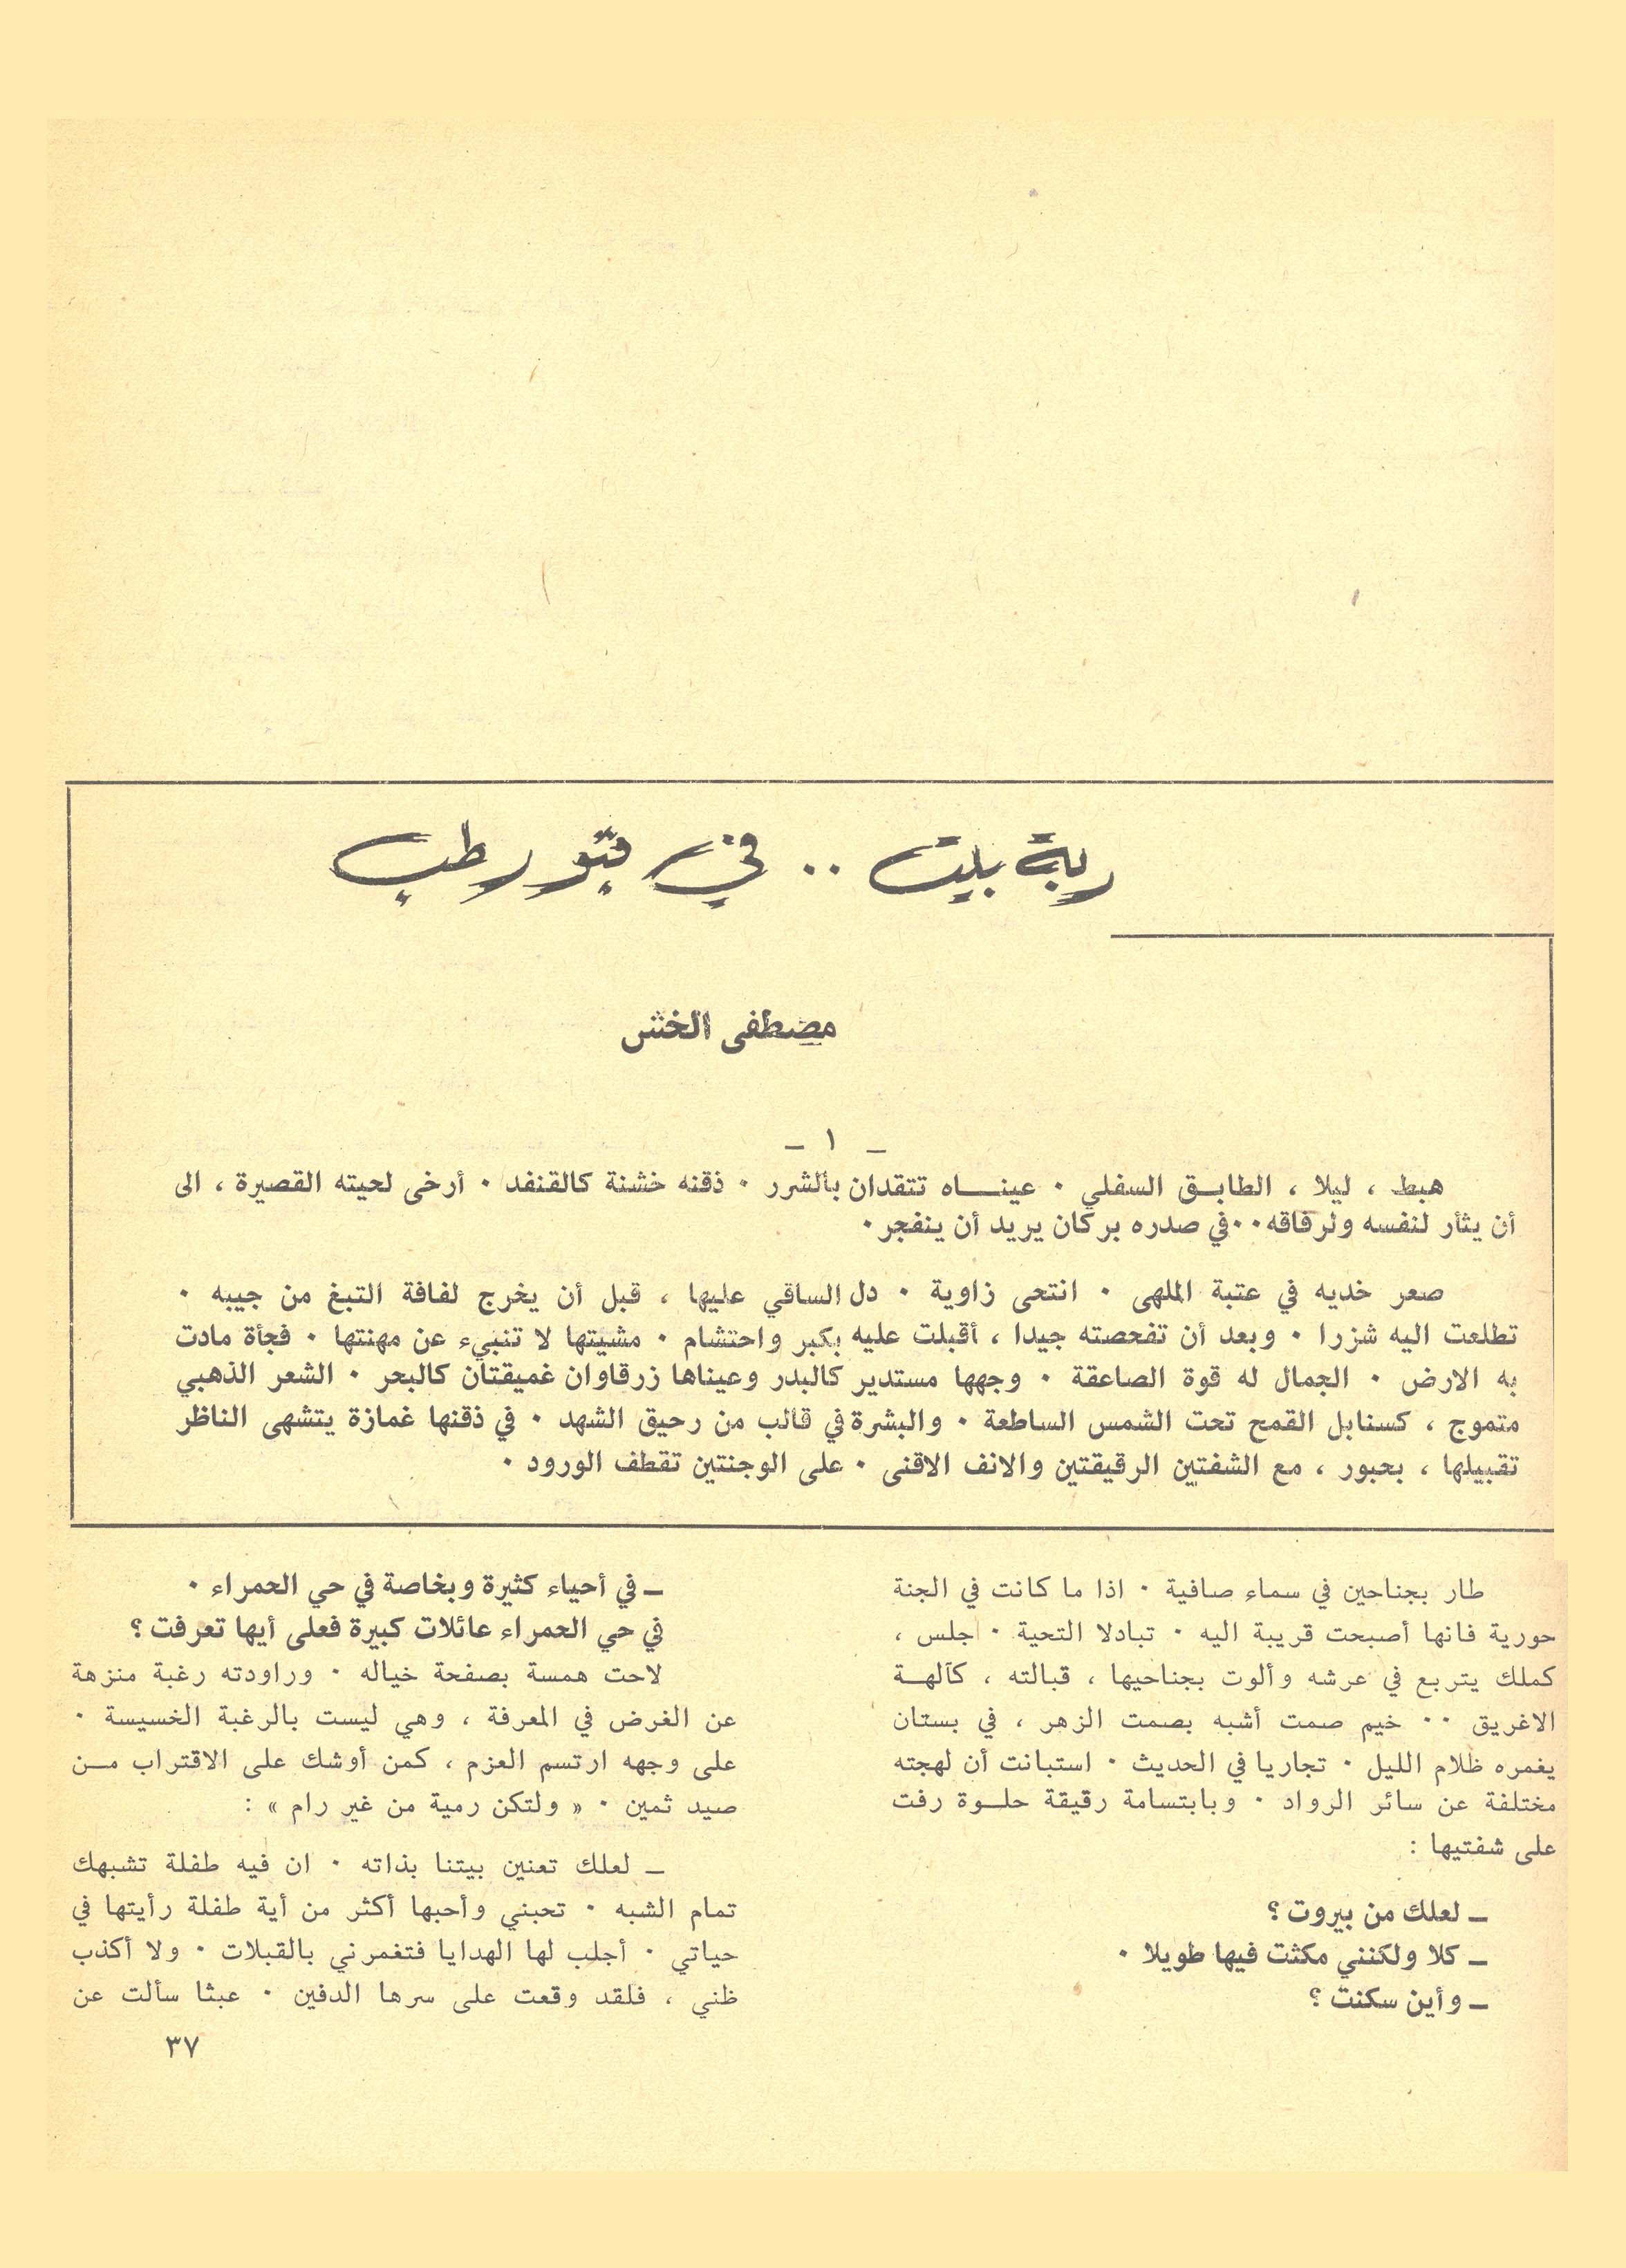 ربة بيت .. في قبو رطب
مصطفى الخش
– ١ –
هبط ، ليلا ، الطابـق السفلي . عينـــاه تتقدان بالشرر . ذقنه خشنة كالقنفد . أرخى لحيته القصيرة ، الى
أن يثأر لنفسه ولرفاقه . . في صدره بركان يريد أن ينفجر .
صعر خديه في عتبة الملهى . انتحى زاوية . دل الساقي عليها ، قبل أن يخرج لفافة التبغ من جيبه .
تطلعت اليه شزرا . وبعد أن تفحصته جيدا ، أقبلت عليه بكبر واحتشام . مشيتها لا تنبيء عن مهنتها . فجأة مادت
به الارض . الجمال له قوة الصاعقة . وجهها مستدير كالبدر وعيناها زرقاوان غميقتان كالبحر . الشعر الذهبي
متموج ، كسنابل القمح تحت الشمس الساطعة . والبشرة في قالب من رحيق الشهد . في ذقنها غمازة يتشهى الناظر
تقبيلها ، بحبور ، مع الشفتين الرقيقتين والانف الاقنى . على الوجنتين تقطف الورود .
طار بجناحين في سماء صافية . اذا ما كانت في الجنة
حورية فانها أصبحت قريبة اليه . تبادلا التحية . جلس ،
كملك يتربع في عرشه وألوت بجناحيها ، قبالته ، كآلهـة
الاغريق . . خيم صمت أشبه بصمت الزهر ، في بستان
يغمره ظلام الليل . تجاريا في الحديث . استبانت أن لهجته
مختلفة عن سائر الرواد . وبابتسامة رقيقة حلـوة رفت
على شفتيها :
– لعلك من بيروت ؟
– كلا ولكنني مكثت فيها طويلا .
– وأين سكنت ؟
– في أحياء كثيرة وبخاصة في حي الحمراء .
في حي الحمراء عائلات كبيرة فعلى أيها تعرفت ؟
لاحت همسة بصفحة خياله . وراودته رغبة منزهة
عن الغرض في المعرفة ، وهي ليست بالرغبة الخسيسة .
على وجهه ارتسم العزم ، كمن أوشك على الاقتراب مـن
صيد ثمين . « ولتكن رمية من غير رام » :
– لعلك تعنين بيتنا بذاته . ان فيه طفلة تشبهك
تمام الشبه . تحبني وأحبها أكثر من أية طفلة رأيتها في
حياتي . أجلب لها الهدايا فتغمرني بالقبلات . ولا أكذب
ظني ، فلقد وقعت على سرها الدفين . عبثا سألت عن
٣٧